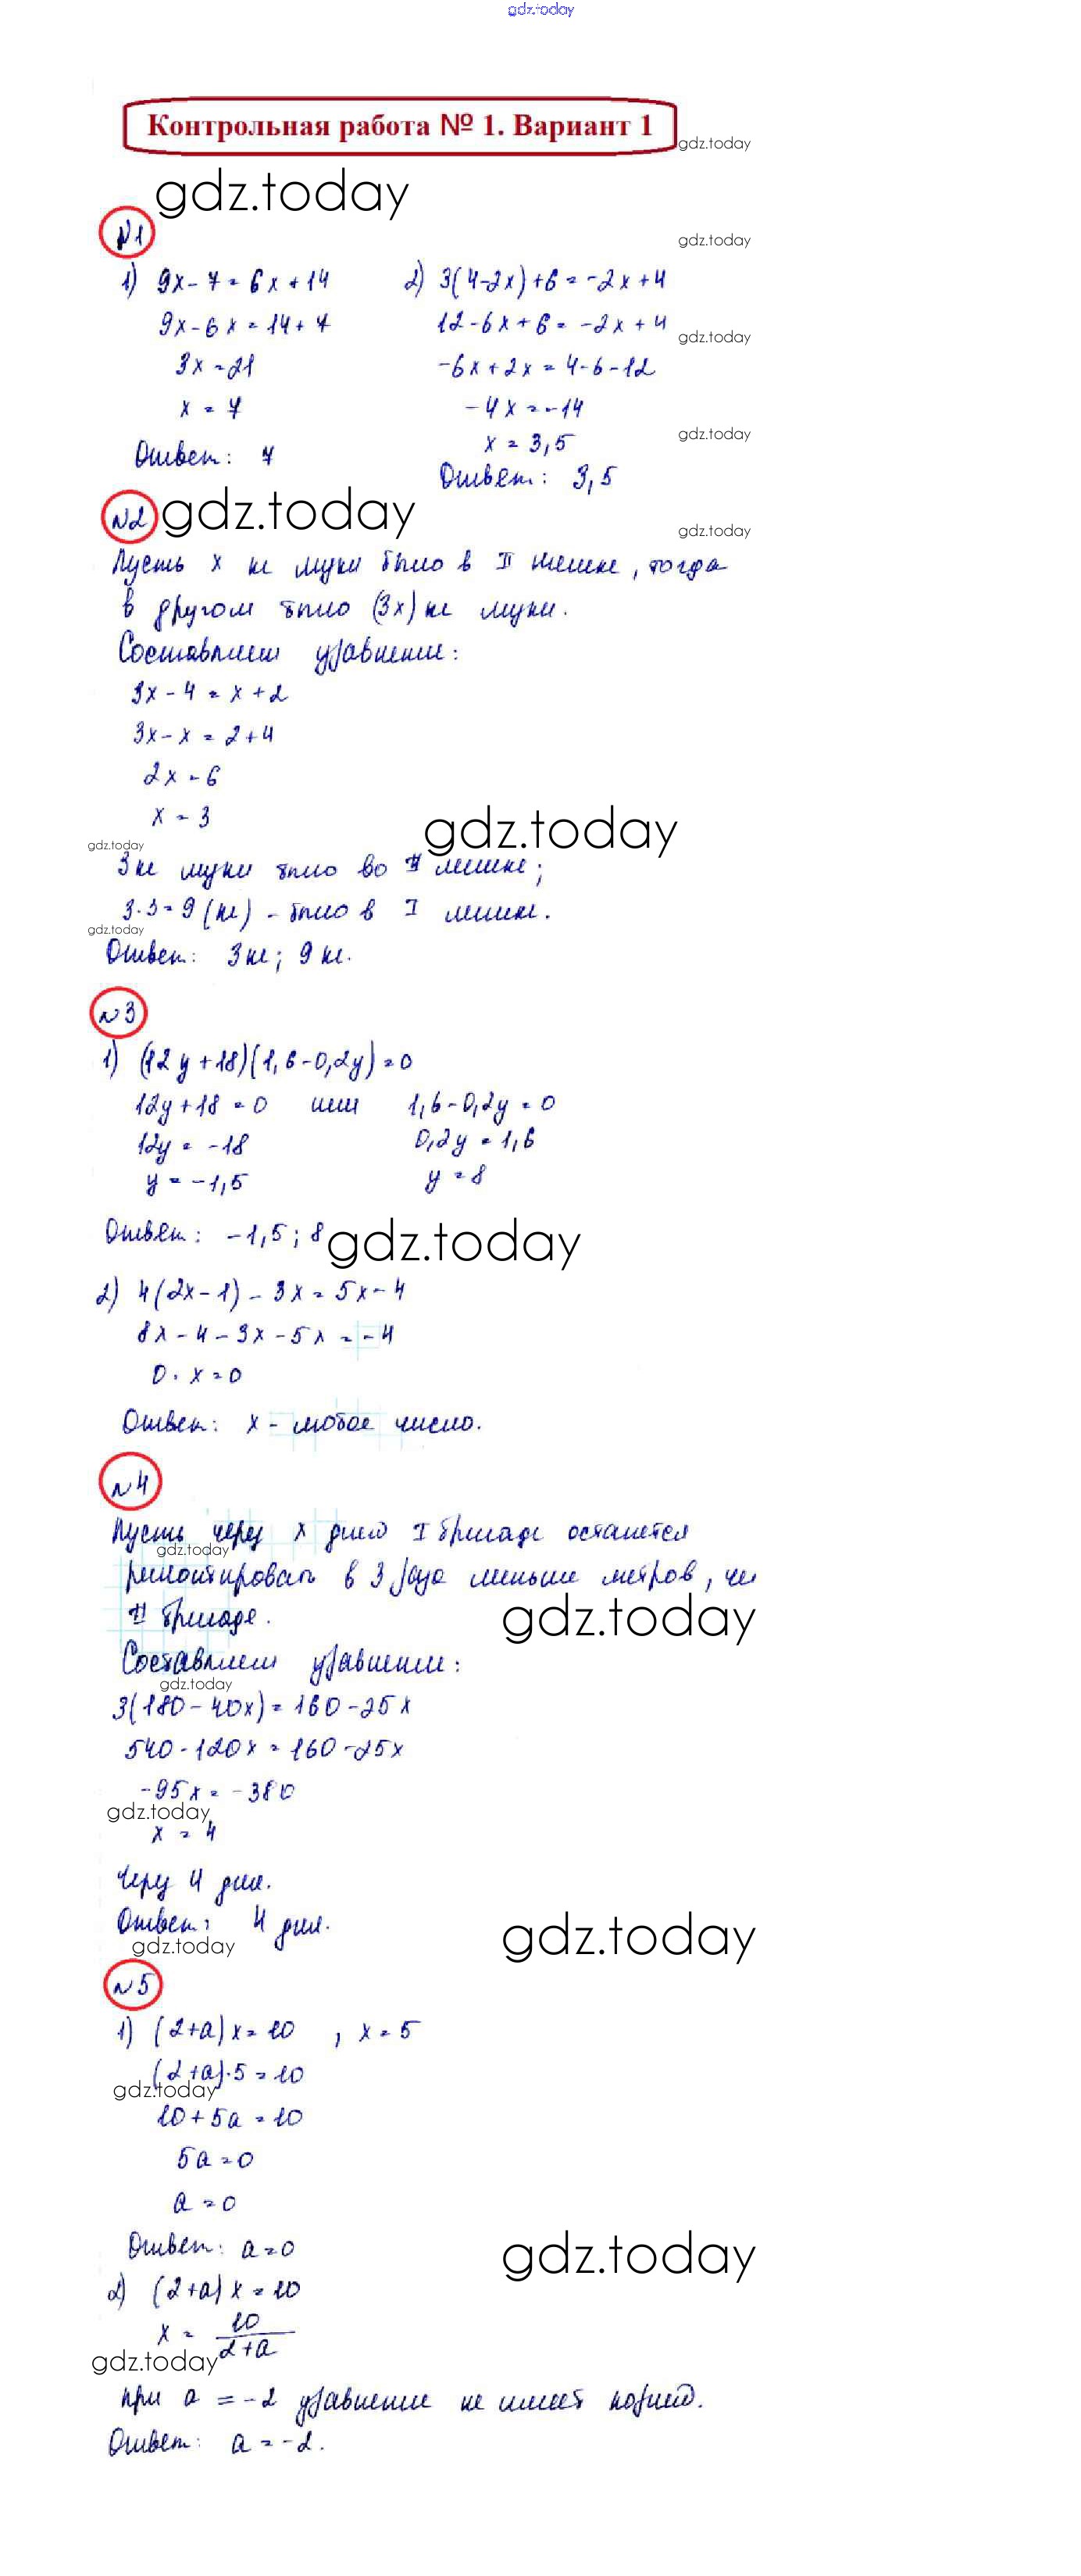 gdz.today
Контрольная работа № 1. Вариант 1
gdz.today
gdz.today
№1
gdz.today
1) 9x-7=6x+14
2) 3(4-2x)+6=-2x+4
9x-6x=14+7
12-6x+6=-2x+4
gdz.today
3x=21
-6x+2x=4-6-12
x=7
-4x=-14
Ответ: 7
x=3,5
gdz.today
Ответ: 3,5
№2
gdz.today
gdz.today
Пусть x кг муки было в II мешке, тогда
в другом было (3x) кг муки.
Составляем уравнение:
3x-4=x+2
3x-x=2+4
2x=6
x=3
gdz.today
gdz.today
3 кг муки было во II мешке;
3·3=9(кг) - было в I мешке.
gdz.today
Ответ: 3 кг; 9 кг.
№3
1) (12y+18)(1,6-0,2y)=0
12y+18=0 или 1,6-0,2y=0
12y=-18
0,2y=1,6
y=-1,5
y=8
Ответ: -1,5; 8
gdz.today
2) 4(2x-1)-3x=5x-4
8x-4-3x-5x=-4
0·x=0
Ответ: x - любое число.
№4
Пусть через x дней I бригаде останется
gdz.today
ремонтировать в 3 раза меньше метров, чем
II бригаде.
gdz.today
Составляем уравнение:
gdz.today
3(180-40x)=160-25x
540-120x=160-25x
-95x=-380
gdz.today
x=4
Через 4 дня.
Ответ: 4 дня.
gdz.today
gdz.today
№5
1) (2+a)x=10, x=5
(2+a)·5=10
gdz.today
10+5a=10
5a=0
a=0
Ответ: a=0
gdz.today
2) (2+a)x=10
x=10/2+a
gdz.today
при a=-2 уравнение не имеет корней.
Ответ: a=-2.